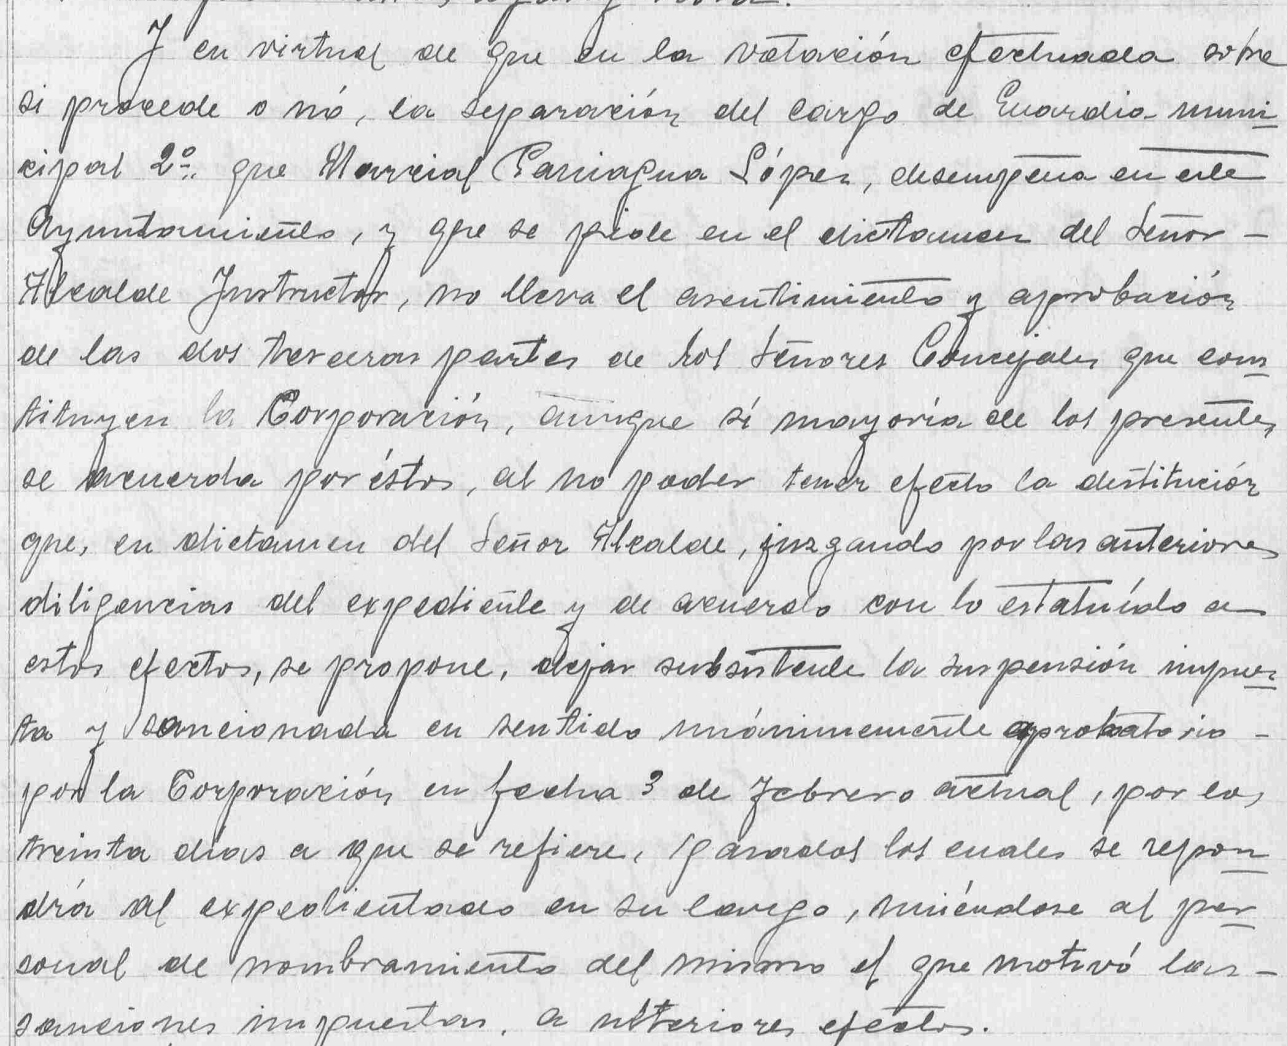 Y en virtud de que en la votación efectuada sobre
si procede o nó, la separación del cargo de Guardia muni-
cipal 2º. que Marcial Paniagua López, desempeña en este
Ayuntamiento, y que se pide en el dictamen del Señor -
Alcalde Instructor, no lleva el asentimiento y aprobación
de las dos terceras partes de los Señores Concejales que cons-
tituyen la Corporación, aunque sí mayoría de los presentes,
se acuerda por éstos, al no poder tener efecto la destitución
que, en dictamen del Señor Alcalde, juzgando por las anteriores
diligencias del expediente y de acuerdo con lo estatuído a
estos efectos, se propone, dejar subsistente la suspensión impues-
ta y sancionada en sentido unánimemente aprobatorio -
por la Corporación en fecha 3 de Febrero actual, por los
treinta días a que se refiere, pasados los cuales se repon-
drá al expedientado en su cargo, uniéndose al per-
sonal de nombramiento del mismo el que motivó las -
sanciones impuestas, a ulteriores efectos.